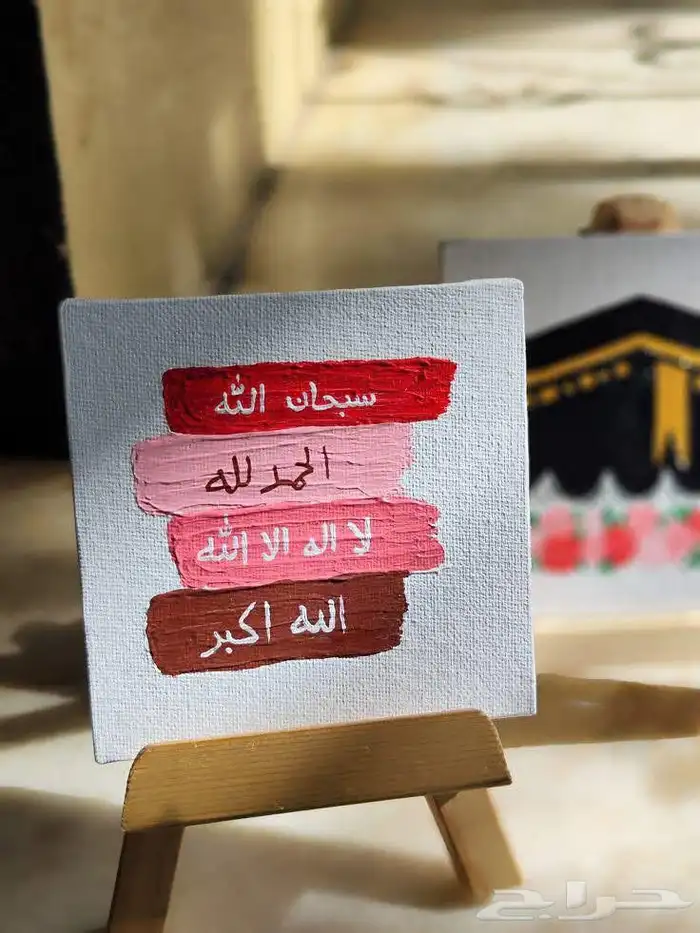 سبحان الله
الحمد لله
لا اله الا الله
الله اكبر
حراج